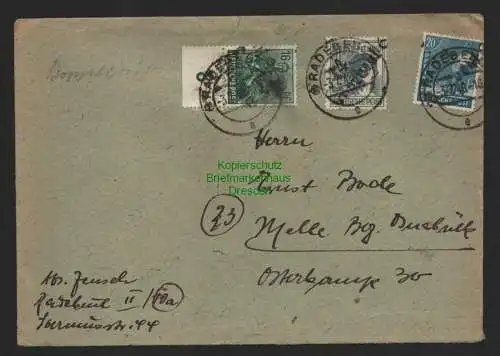 Doppelbrief
RADEBEUL
RADEBEUL
RADEBEUL
20
Kopierschutz
Briefmarkenhaus
Dresden
Herrn
Ernst Bode
(23)
Melle Bz. Osnabrück
Osterkamp 30
Abs. Jensch
Radebeul II /(10a)